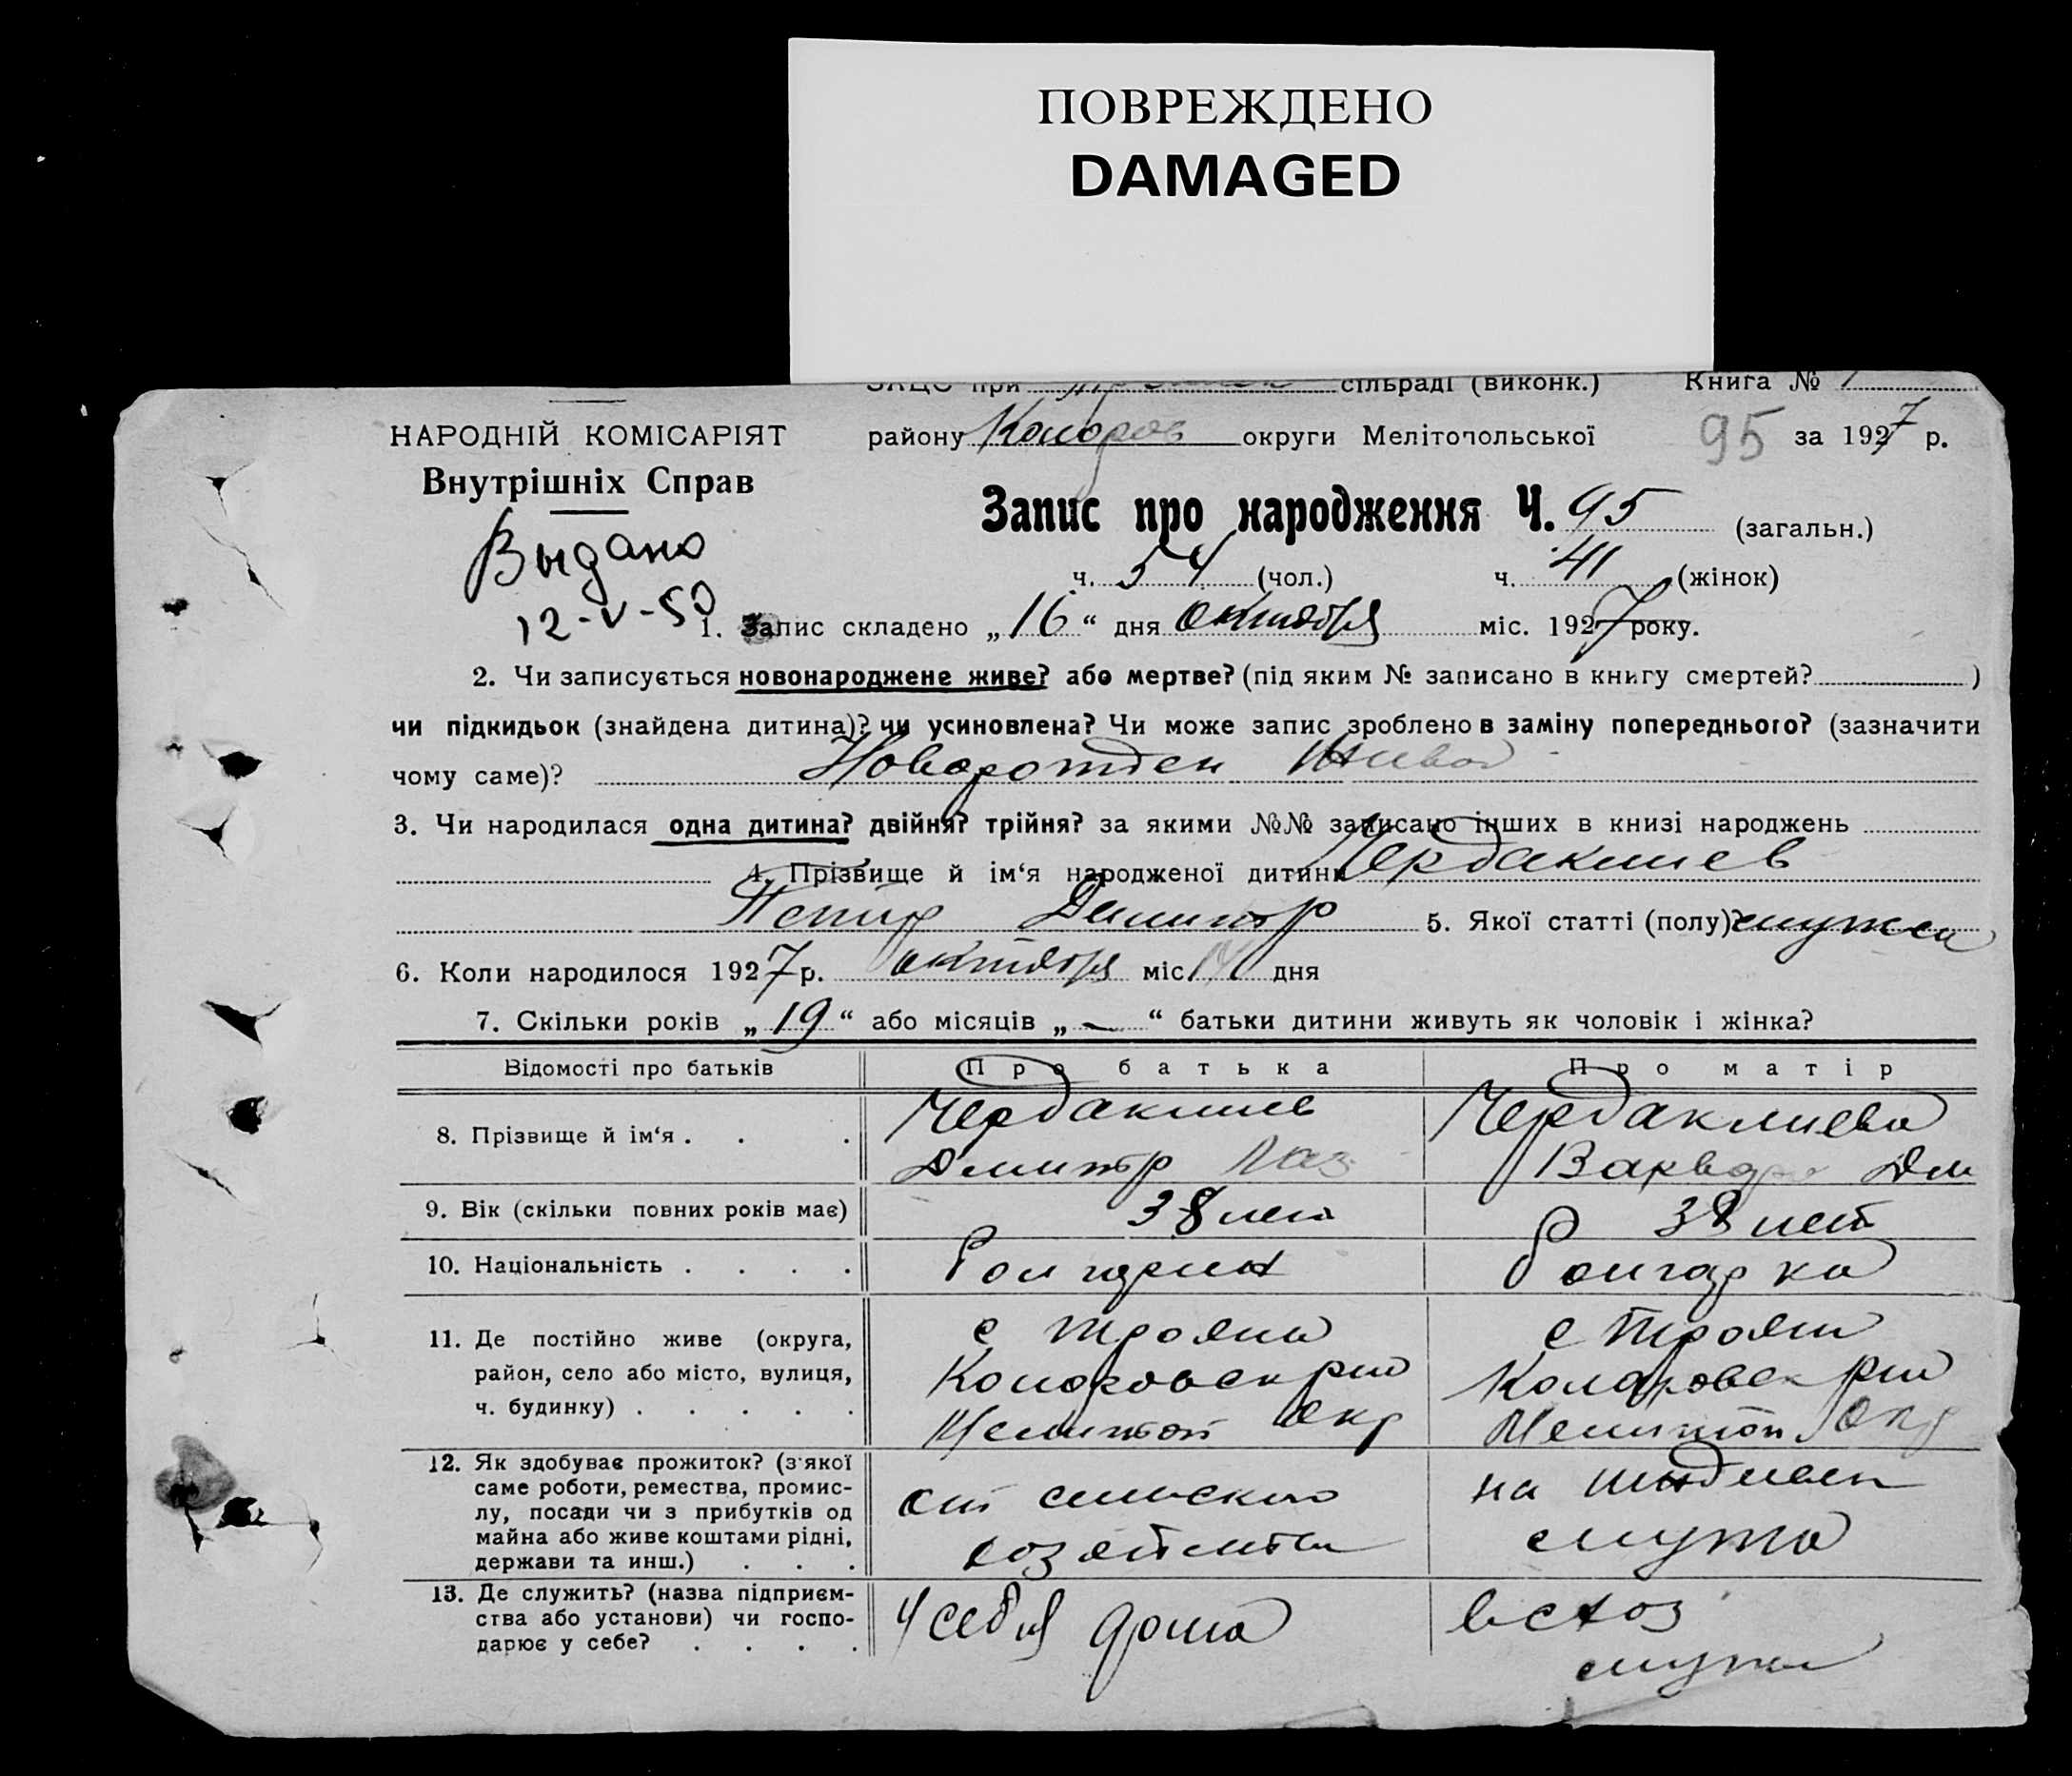 ПОВРЕЖДЕНО
DAMAGED
ЗАЦС при сільраді (виконк.) Книга №
НАРОДНІЙ КОМІСАРІЯТ
Внутрішніх Справ
району Колоров округи Мелітопольської 95 за 1927 р.
Запис про народження Ч. 95 (загальн.)
Выдано
12-V-50
ч. 54 (чол.) ч. 41 (жінок)
1. Запис складено „16“ дня октября міс. 1927 року.
2. Чи записується новонароджене живе? або мертве? (під яким № записано в книгу смертей? )
чи підкидьок (знайдена дитина)? чи усиновлена? Чи може запис зроблено в заміну попереднього? (зазначити
чому саме)? Новорожден живой
3. Чи народилася одна дитина? двійня? трійня? за якими №№ записано інших в книзі народжень
4. Прізвище й ім‘я народженої дитини Чердаклиев
Петир Димитр 5. Якої статті (полу)? мужск
6. Коли народилося 1927 р. октября міс. дня
7. Скільки років „19“ або місяців „—“ батьки дитини живуть як чоловік і жінка?
Відомості про батьків Про батька Про матір
8. Прізвище й ім‘я . . .
Чердаклиев
Димитр Лаз
Чердаклиева
Варвара Дм
9. Вік (скільки повних років має) 38 лет 38 лет
10. Національність . . . . Болгарин Болгарка
11. Де постійно живе (округа,
район, село або місто, вулиця,
ч. будинку) . . . . .
с Трояны
Колоровск р-на
Мелитоп Окр
с Трояны
Коларовск р-на
Мелитоп Окр
12. Як здобуває прожиток? (з якої
саме роботи, ремества, промис-
лу, посади чи з прибутків од
майна або живе коштами рідні,
держави та инш.) . . .
от сельского
хозяйства
на иждивен
мужа
13. Де служить? (назва підприєм-
ства або установи) чи госпо-
дарює у себе? . . . .
У себя дома
в схоз
мужа